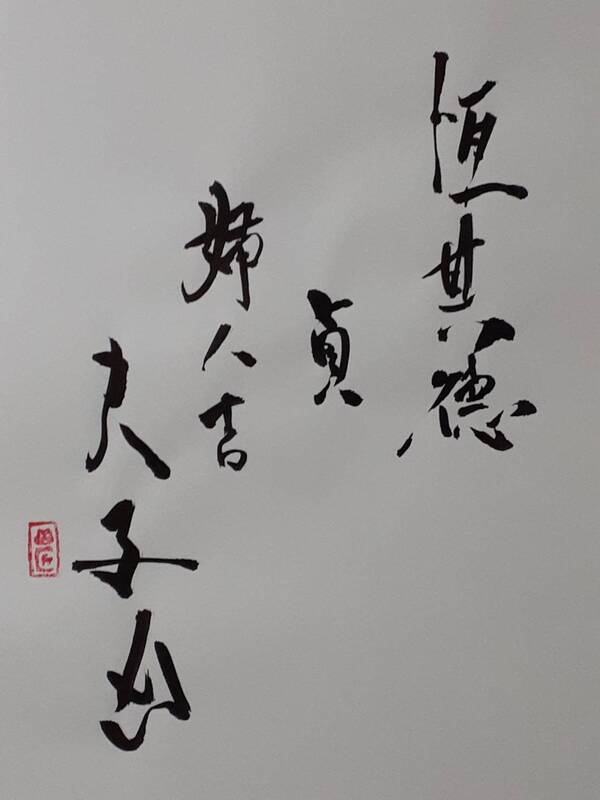 恆其德
貞
婦人吉
夫子凶